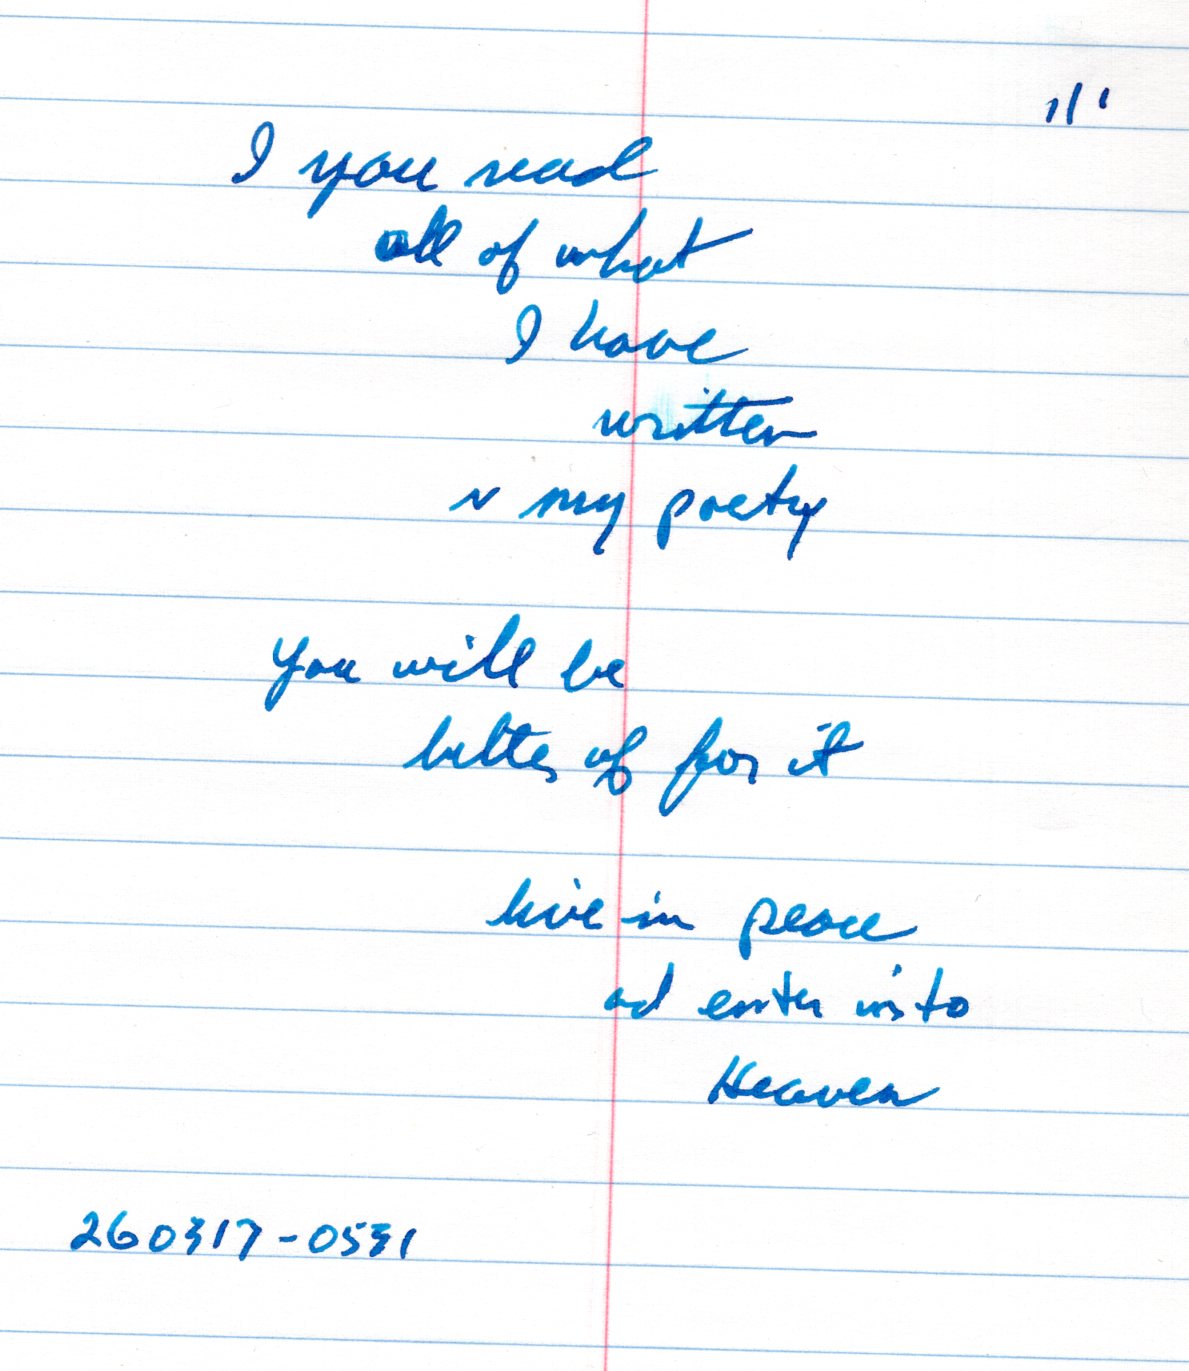 1/1
I you read
all of what
I have
written
n my poety
you will be
better of for it
live in peace
ad enter into
Heaven
260317-0531